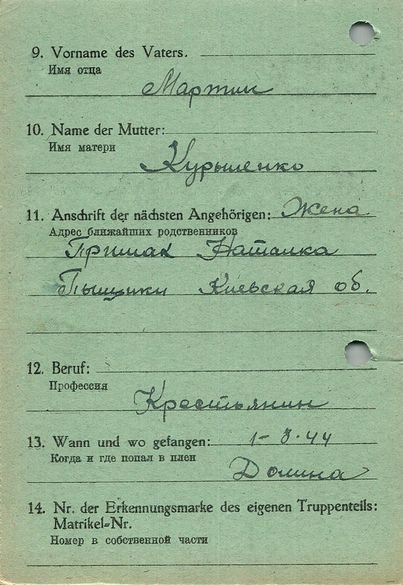 9. Vorname des Vaters.
Имя отца
Мартин
10. Name der Mutter:
Имя матери
Курышенко
11. Anschrift der nächsten Angehörigen: Жена.
Адрес ближайших родственников
Пришак Наталка
Пыщики Киевская об.
12. Beruf:
Профессия
Крестьянин
13. Wann und wo gefangen: 1-8-44
Когда и где попал в плен
Долина
14. Nr. der Erkennungsmarke des eigenen Truppenteils:
Matrikel-Nr.
Номер в собственной части